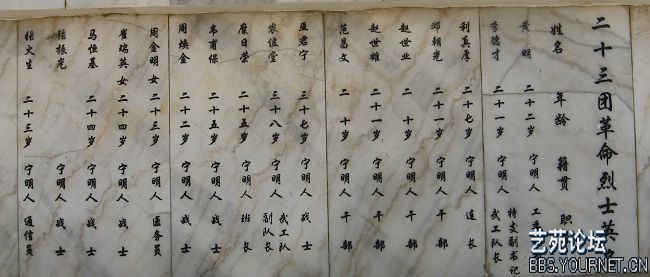 二十三团革命烈士英
姓名 年龄 籍贯 职
黄明 二十二岁 宁明人
李德才 二十一岁 宁明人 特支副书记 武工队
利真厚 二十七岁 宁明人 连长
邓朝光 二十岁 宁明人 干部
赵世业 二十岁 宁明人 干部
赵世雄 二十一岁 宁明人 干部
范昌文 二十岁 宁明人 干部
巫君宁 三十七岁 宁明人 战士
农位堂 三十八岁 宁明人 武工队副队长
糜日荣 二十五岁 宁明人 班长
韦甫保 二十五岁 宁明人 战士
周焕金 二十二岁 宁明人 战士
周金明女 二十三岁 宁明人 医务员
崔瑞英女 二十四岁 宁明人 战士
马恒基 二十四岁 宁明人 战士
张振光 宁明人 战士
张火生 二十三岁 宁明人 通信员
艺苑论坛
BBS.YOURNET.CN